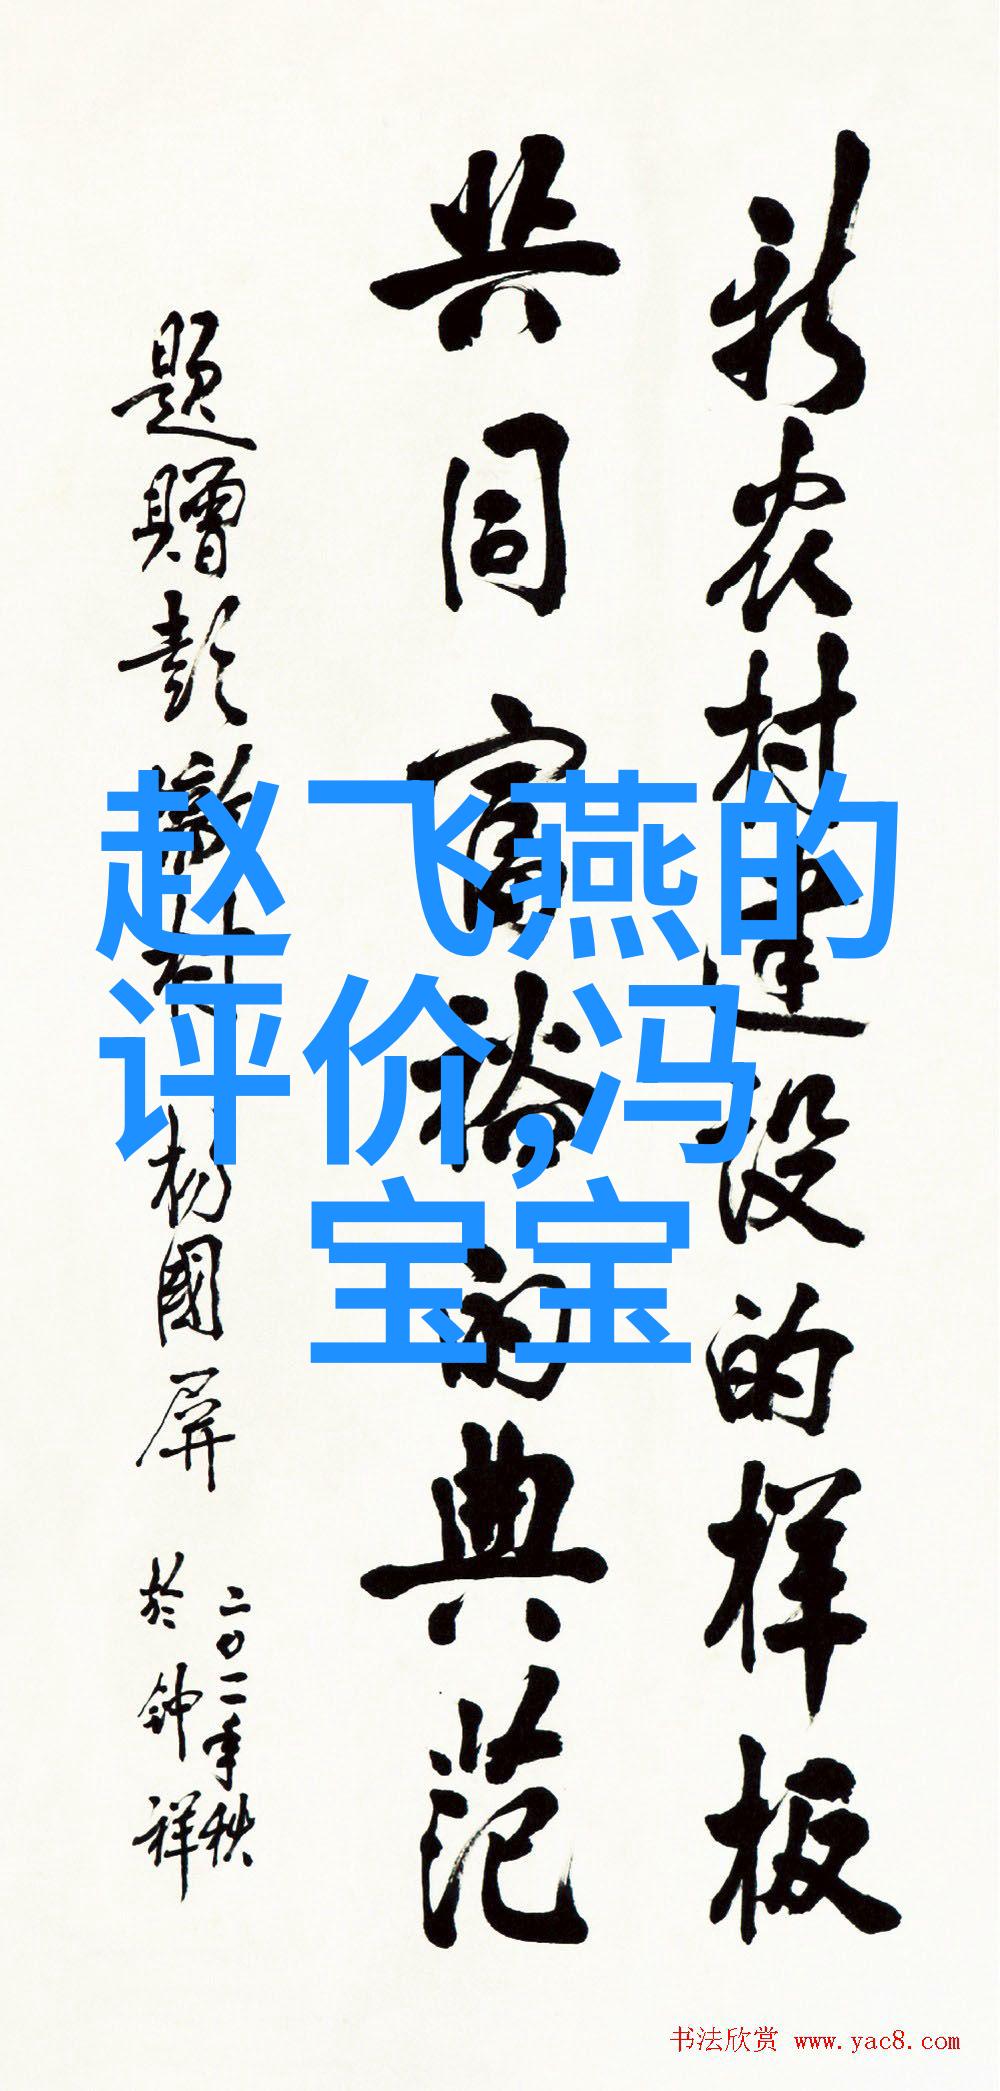 新农村建设的样板
共同富裕的典范
题赠彭墩村 杨国屏
二〇一一年秋
於钟祥
赵飞燕的
评价,冯
宝宝
书法欣赏 www.yac8.com